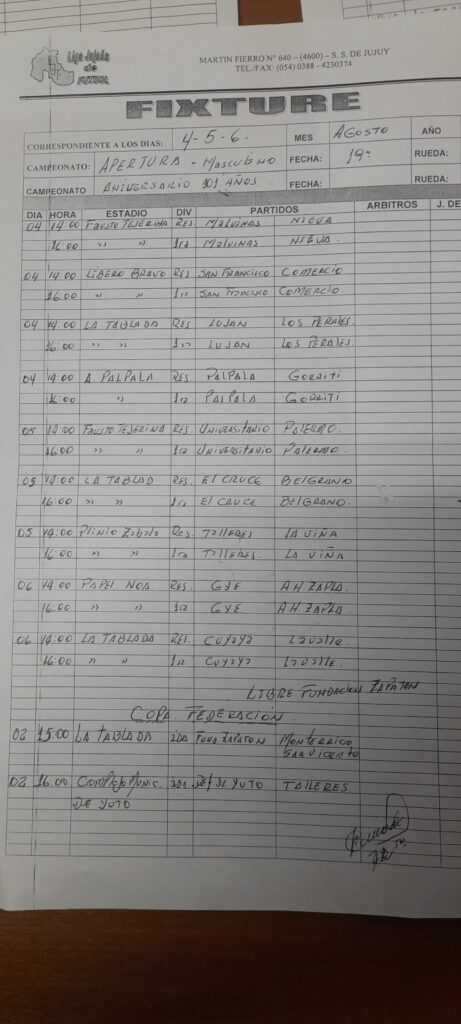 Liga Jujeña
de
FUTBOL
MARTIN FIERRO Nº 640 – (4600) – S. S. DE JUJUY
TEL./FAX: (054) 0388 - 4230374
FIXTURE
CORRESPONDIENTE A LOS DIAS: 4-5-6. MES AGOSTO AÑO
CAMPEONATO: APERTURA - Masculino FECHA: 19º RUEDA:
CAMPEONATO ANIVERSARIO 101 AÑOS. FECHA: RUEDA:
DIA HORA ESTADIO DIV PARTIDOS ARBITROS J. DE
04 14:00 Fausto TEJERINA RES MALVINAS NIEVA
16:00 " " 1ra MALVINAS NIEVA.
04 14:00 LIBERO BRAVO RES SAN FRANCISCO COMERCIO
16:00 " " 1ra SAN FRANCISCO COMERCIO.
04 14:00 LA TABLADA RES LUJAN LOS PERALES.
16:00 " " 1ra LUJAN LOS PERALES.
04 14:00 A. PALPALA RES. PALPALA. GORRITI
16:00 " 1ra PALPALA GORRITI
05 14:00 Fausto TEJERINA RES. UNIVERSITARIO PALERMO.
16:00 " " 1ra UNIVERSITARIO PALERMO.
05 14:00 LA TABLAD RES. El CRUCE BELGRANO
16:00 " " 1ra El CRUCE BELGRANO.
05 14:00 Plinio Zabala Res. TALLERES LA VIÑA
16:00 " " 1ra TALLERES. LA VIÑA
06 14:00 PAPEL NOA RES. GYE A.H. ZAPLA.
16:00 " " 1ra GYE. A.H. ZAPLA
06 14:00 LA TABLADA RES. CUYAYA LAVALLE.
16:00 " " 1ra CUYAYA LAVALLE.
LIBRE FUNDACION ZAPATON
COPA FEDERACION
02 15:00 LA TABLADA ida FUND. ZAPATON MONTERRICO
SAN VICENTE.
02 16:00 COMPLEJO MUNIC. ida DEF. DE YUTO TALLERES
DE YUTO